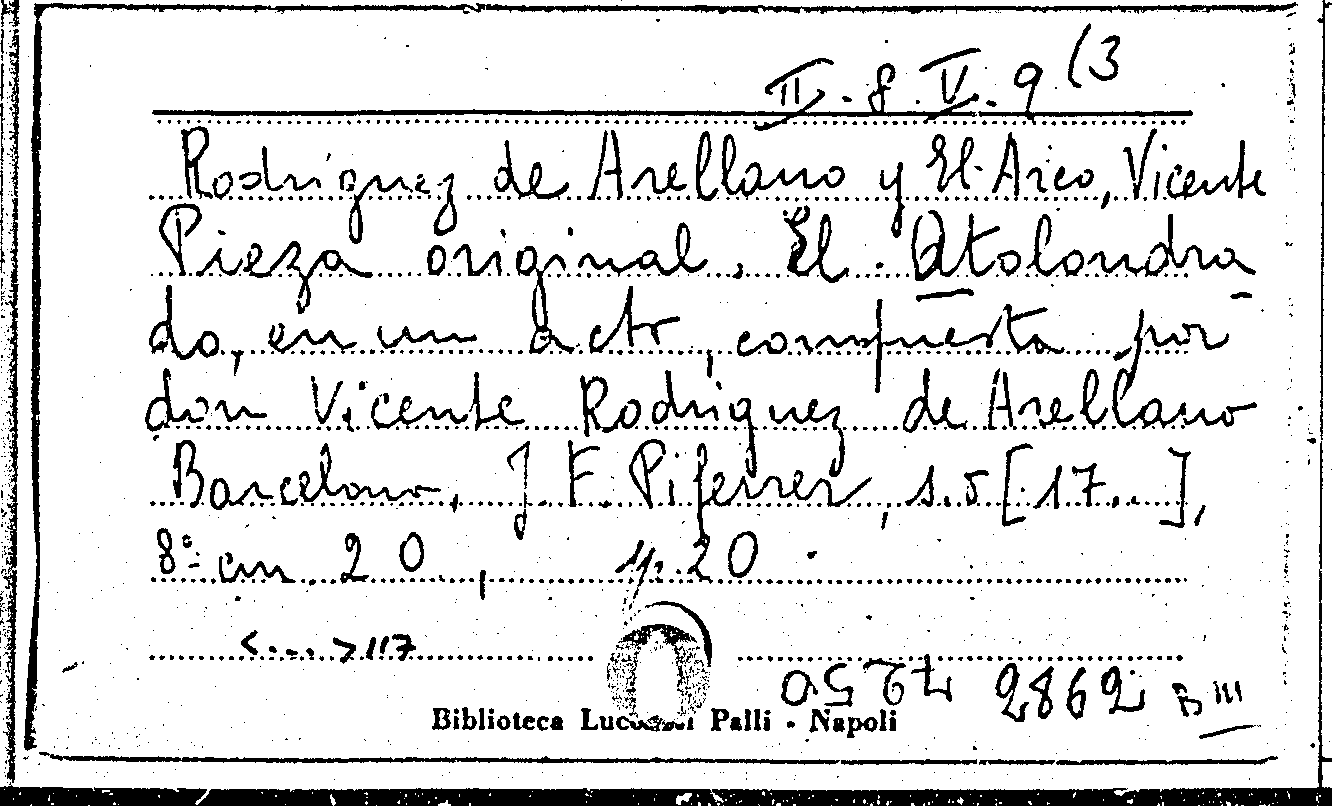 II. 8. V. 9 (3
Rodriguez de Arellano y El Arco, Vicente
Pieza original. El Atolondra-
do, en un acto, compuesta por
don Vicente Rodriguez de Arellano
Barcelona, J. F. Piferrer, s. a [17..],
8º cm. 20, p. 20.
<...> 117
2862 B III
Biblioteca Lucchesi Palli - Napoli